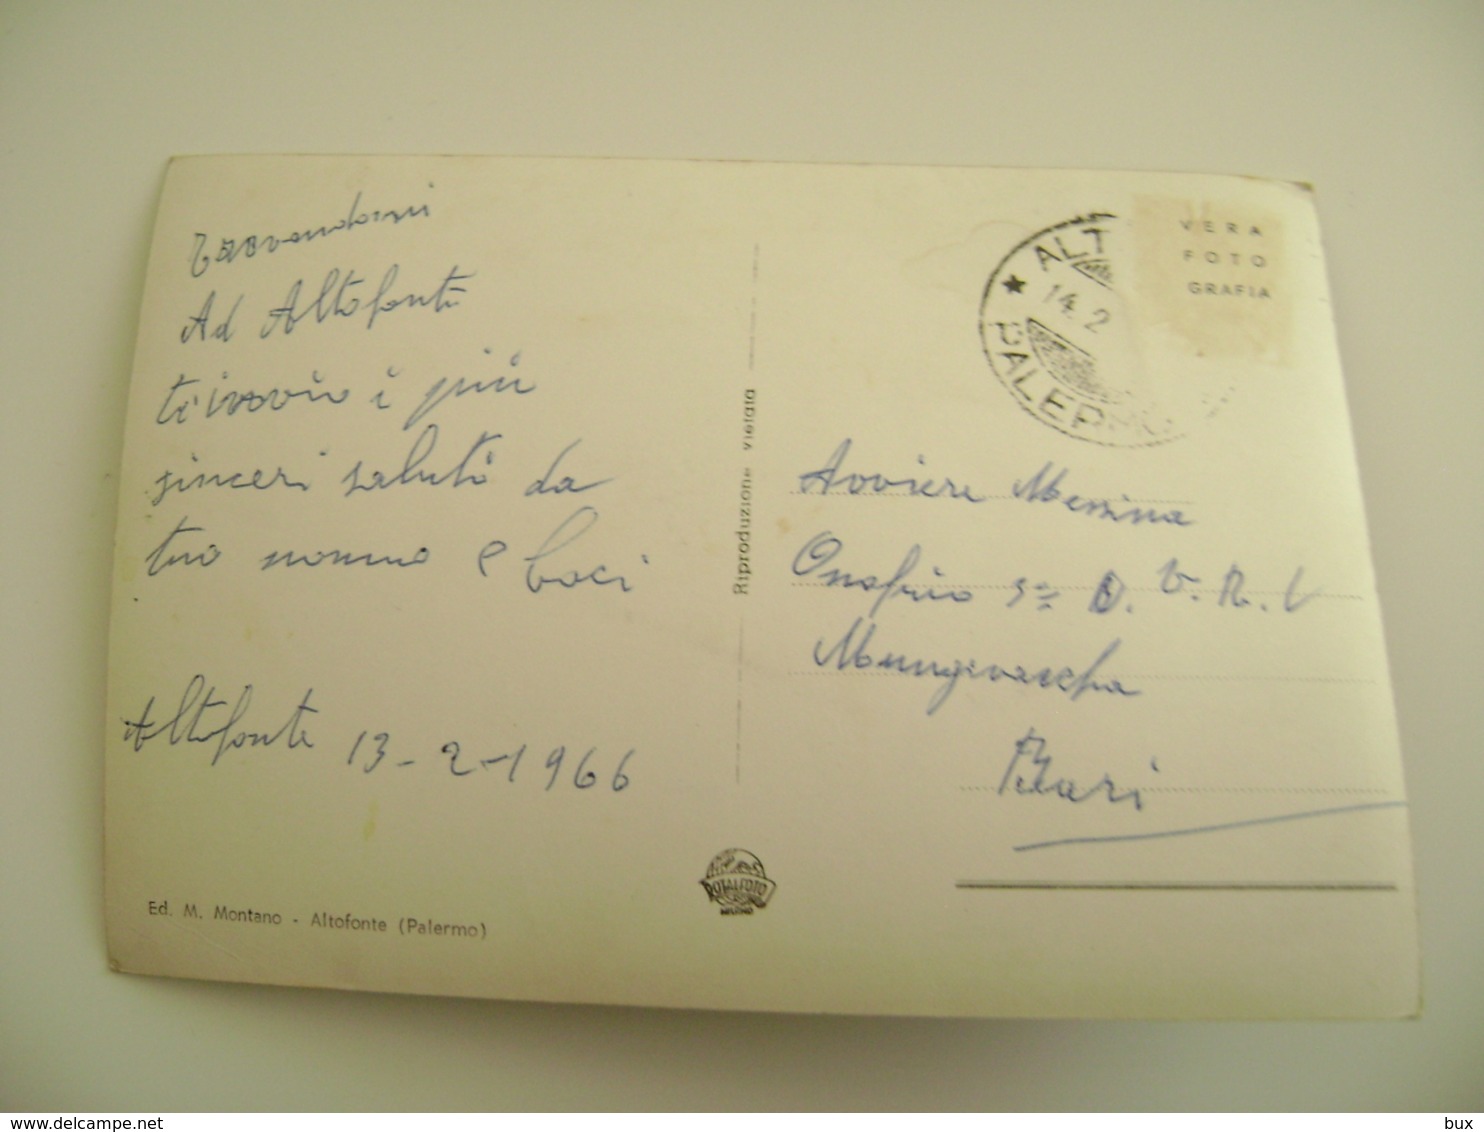 Ad Altofonte
ti invio i più
sinceri saluti da
tuo nonno e baci
Altofonte 13-2-1966
Ed. M. Montano - Altofonte (Palermo)
Riproduzione vietata
VERA
FOTO
GRAFIA
ALT
14.2
PALERMO
ROTALFOTO
MILANO
Avviere Messina
Onofrio 3ª D. V. R. I
Mungivaccha
Bari
delcampe.net
bux